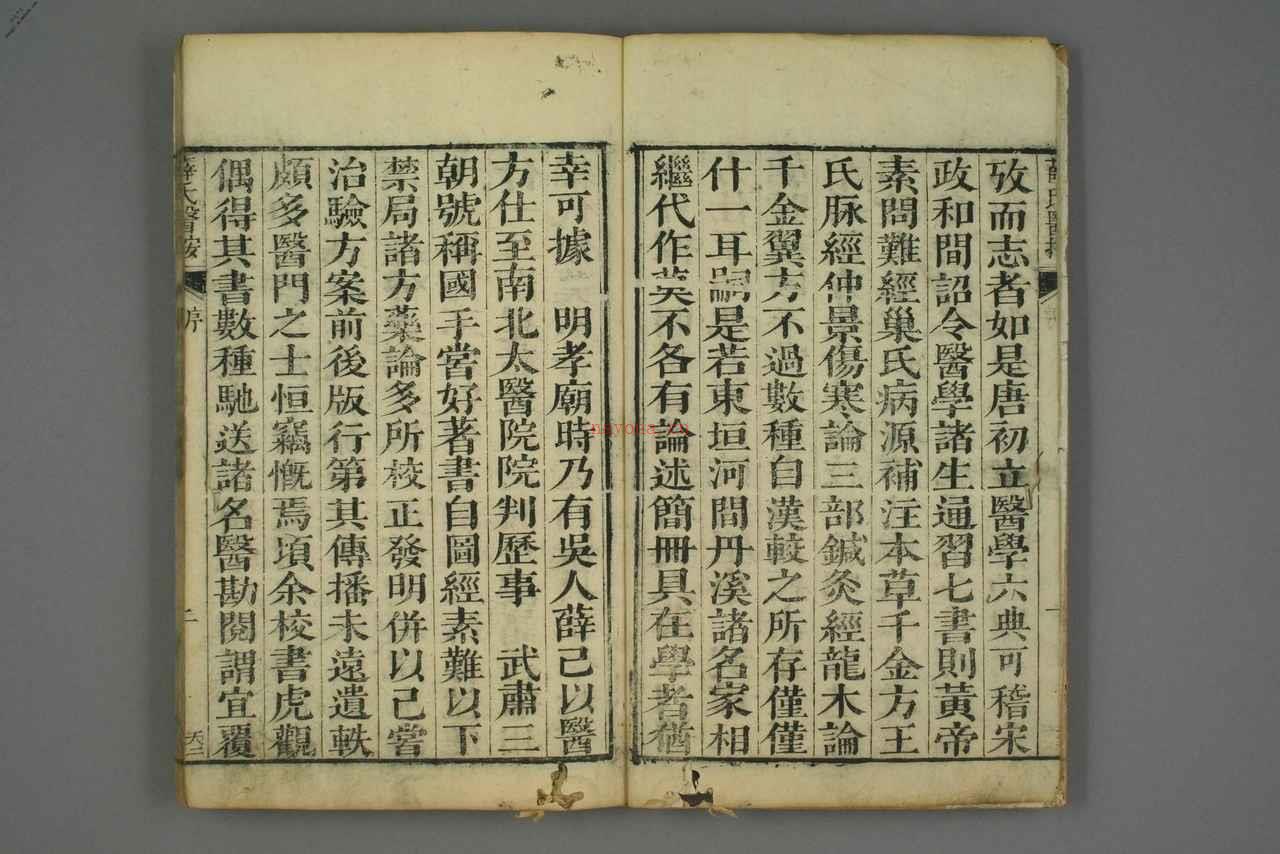 攷而志者如是唐初立醫學六典可稽宋
政和間詔令醫學諸生通習七書則黃帝
素問難經巢氏病源補注本草千金方王
氏脉經仲景傷寒論三部鍼灸經龍木論
千金翼方不過數種自漢較之所存僅僅
什一耳嗣是若東垣河間丹溪諸名家相
繼代作莫不各有論述簡冊具在學者猶
幸可據　明孝廟時乃有吳人薛己以醫
方仕至南北太醫院院判歷事　武肅三
朝號稱國手嘗好著書自圖經素難以下
禁局諸方藥論多所校正發明併以己嘗
治驗方案前後版行第其傳播未遠遺軼
頗多醫門之士恒竊慨焉頃余校書虎觀
偶得其書數種馳送諸名醫勘閱謂宜覆
薛氏醫按
序
二